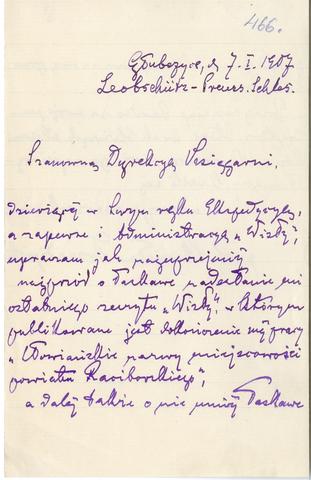 466.
Głubczyce, d. 7. I. 1907
Leobschütz – Preuss. Schles.
Szanowna Dyrekcyo Księgarni,
dzierżącej w swym ręku Ekspedycyę,
a zapewne i Administracyę „Wisły",
upraszam jak najuprzejmiej
najprzód o łaskawe nadesłanie mi
ostatniego zeszytu „Wisły", w którym
publikowane jest dokończenie mej pracy
„Słowiańskie nazwy miejscowości
powiatu Raciborskiego",
a dalej także o nie mniej łaskawe